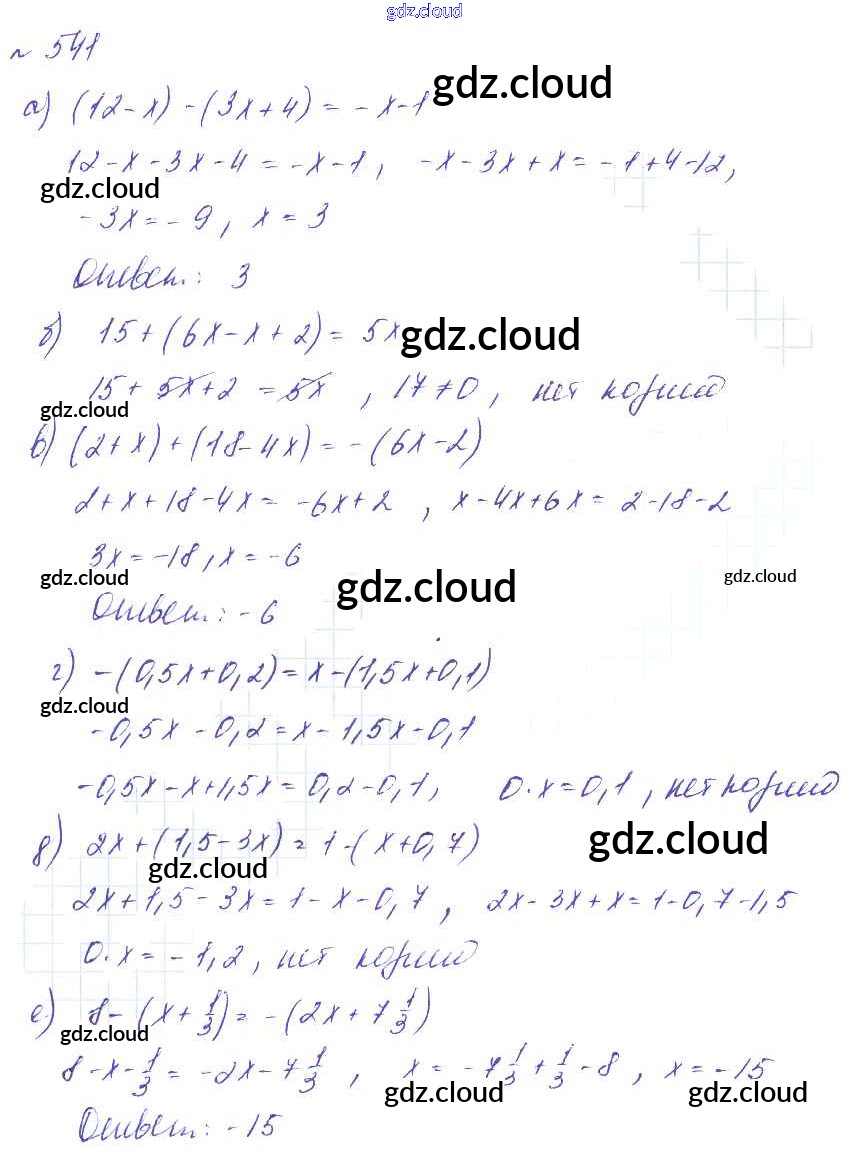 gdz.cloud
№ 541
а) (12-x) - (3x+4) = -x-1
gdz.cloud
12-x-3x-4 = -x-1, -x-3x+x = -1+4-12,
gdz.cloud
-3x = -9, x = 3
Ответ: 3
б) 15+(6x-x+2) = 5x
gdz.cloud
15+5x+2 = 5x, 17≠0, нет корней
gdz.cloud
в) (2+x)+(18-4x) = -(6x-2)
2+x+18-4x = -6x+2, x-4x+6x = 2-18-2
3x = -18, x = -6
gdz.cloud gdz.cloud gdz.cloud
Ответ: -6
г) -(0,5x+0,2) = x-(1,5x+0,1)
gdz.cloud
-0,5x-0,2 = x-1,5x-0,1
-0,5x-x+1,5x = 0,2-0,1, 0·x = 0,1, нет корней
д) 2x+(1,5-3x) = 1-(x+0,7)
gdz.cloud gdz.cloud
2x+1,5-3x = 1-x-0,7, 2x-3x+x = 1-0,7-1,5
0·x = -1,2, нет корней
е) 8-(x+1/3) = -(2x+7 1/3)
gdz.cloud
8-x-1/3 = -2x-7 1/3, x = -7 1/3+1/3-8, x = -15
gdz.cloud gdz.cloud
Ответ: -15